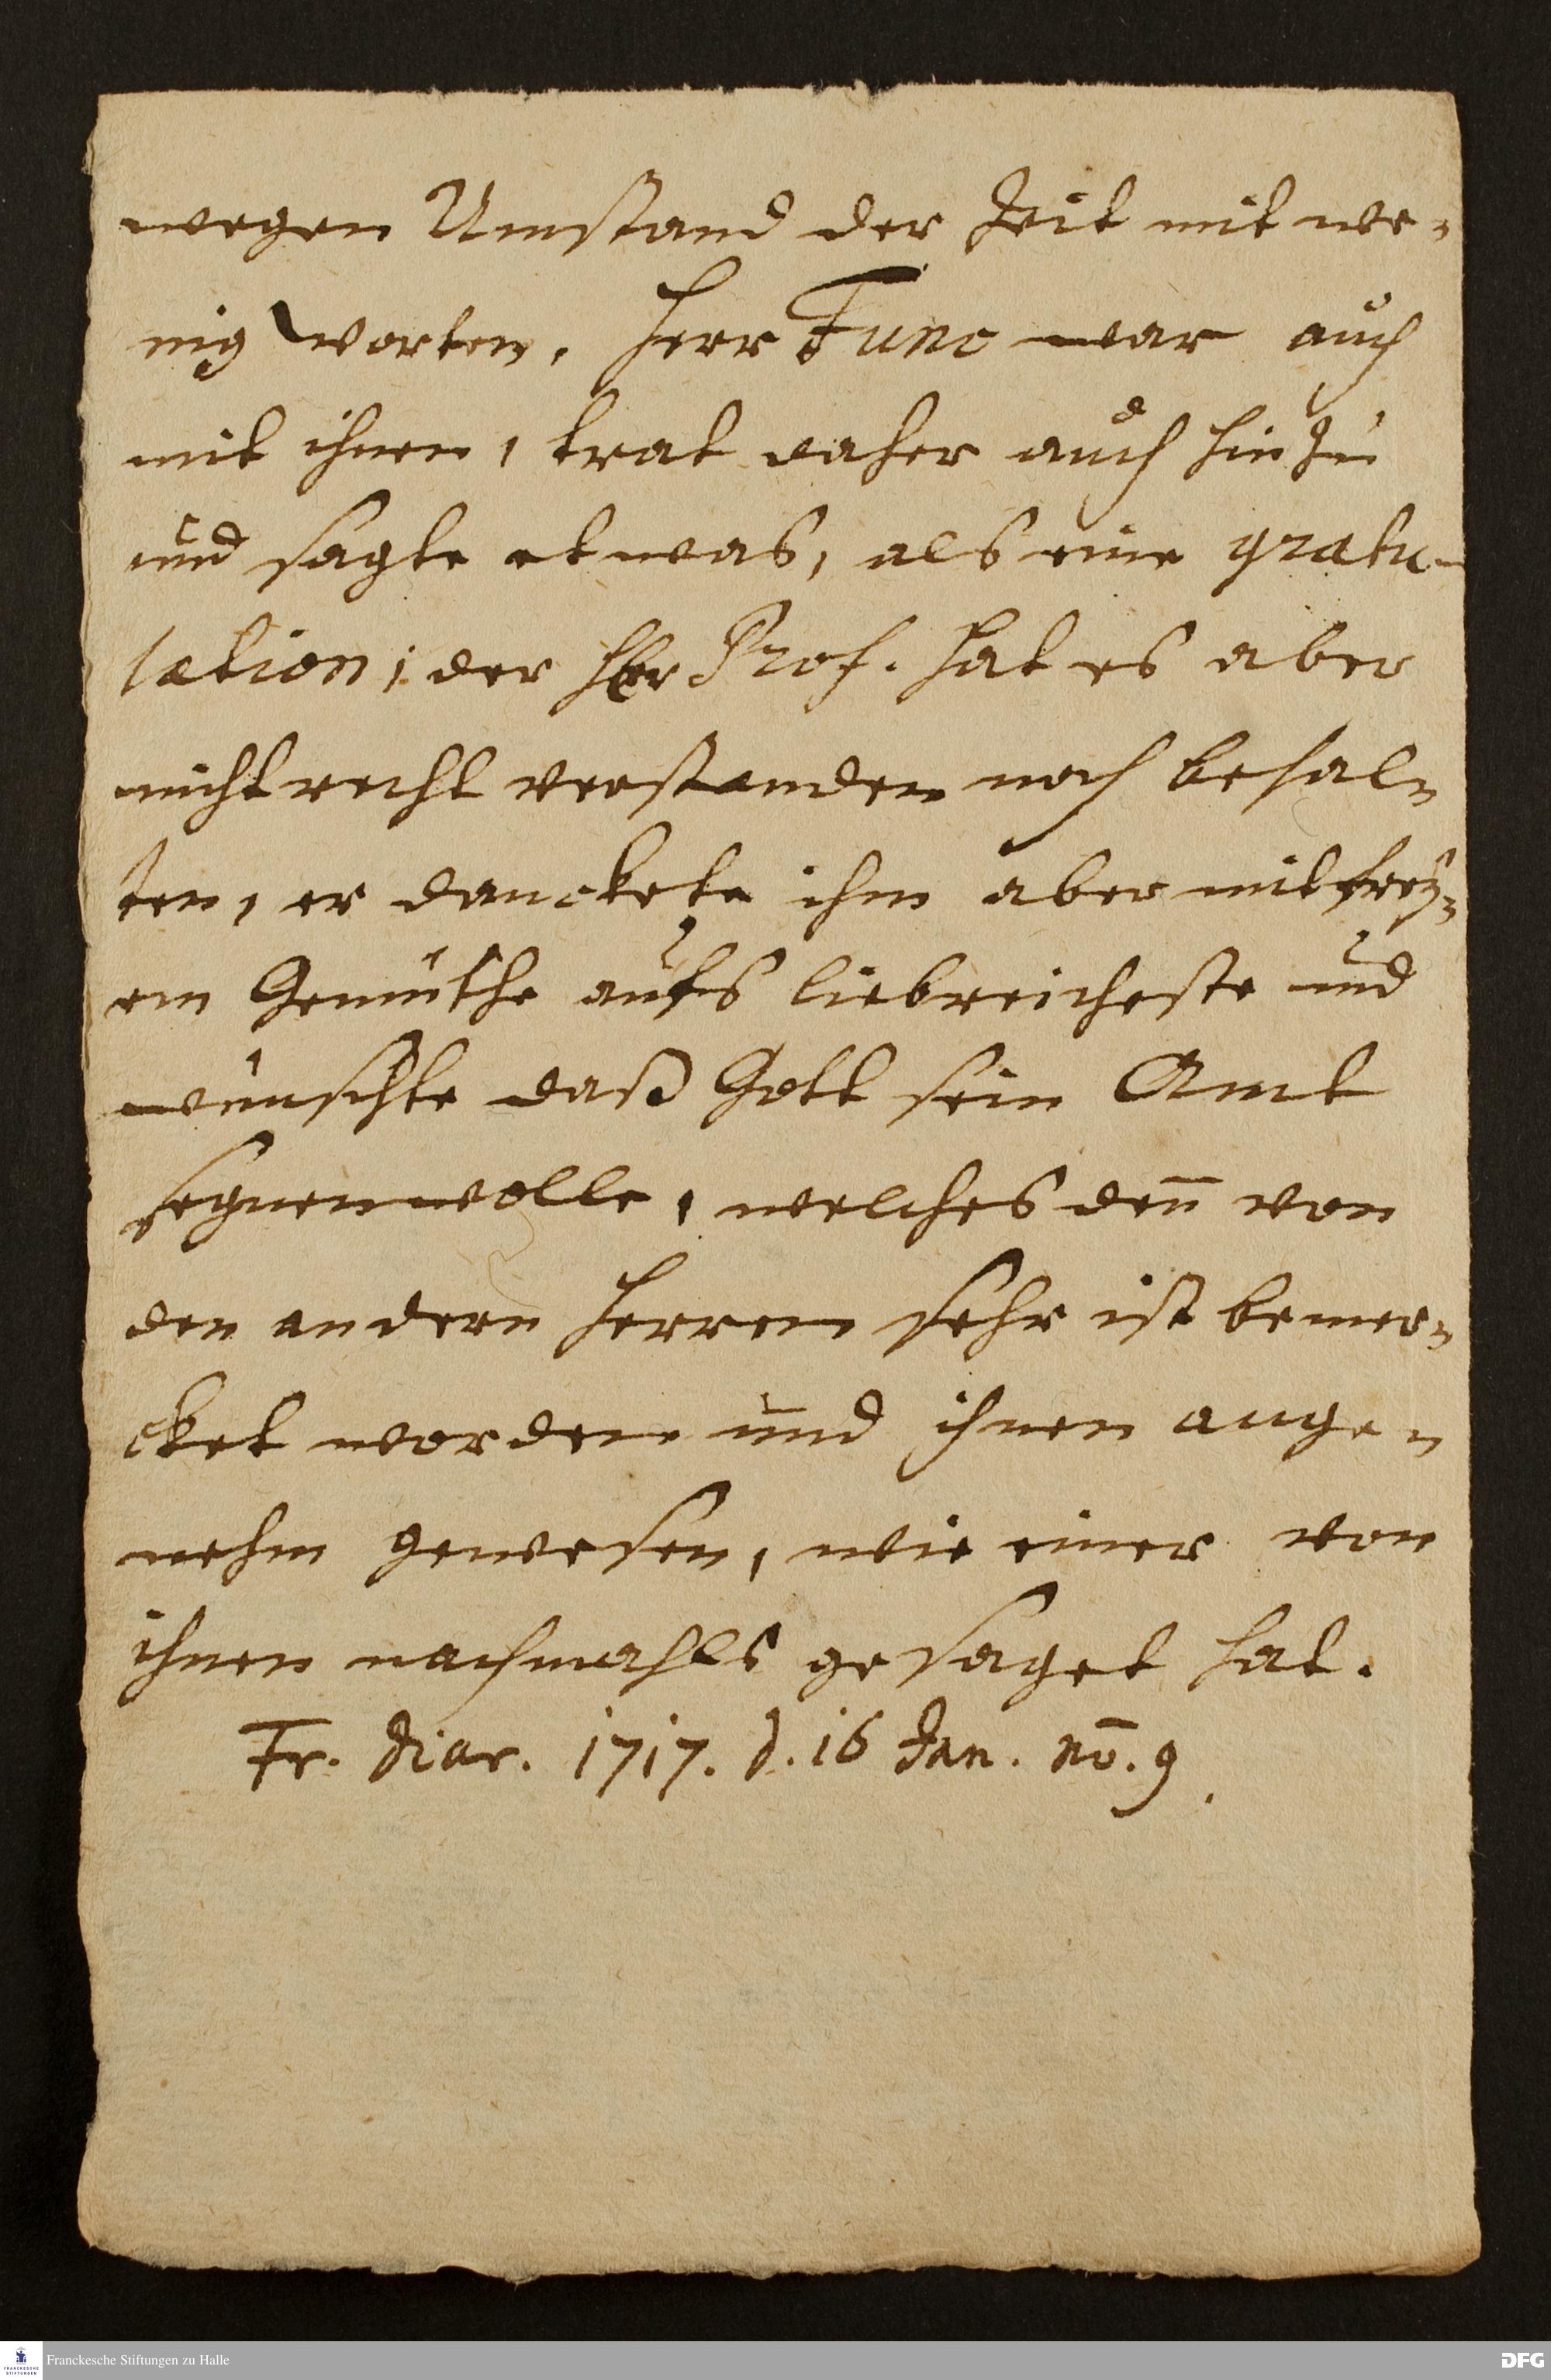 wegen Umstand der Zeit mit we-
nig worten. Herr Func war auch
mit ihnen, trat daher auch hinzu
und sagte etwas, als eine gratu-
lation; der Herr Prof. hat es aber
nicht recht verstanden noch behal-
ten, er danckete ihm aber mit frey-
em Gemüthe aufs liebreicheste und
wünschte daß Gott sein Amt
segnen wolle, welches den̄ von
den andern Herren sehr ist bemer-
cket worden und ihnen ange-
nehm gewesen, wie einer von
ihnen nachmahls gesaget hat.
Fr. Diar. 1717. d. 16 Jan. nō. 9.
FRANCKESCHE
STIFTUNGEN
Franckesche Stiftungen zu Halle
DFG